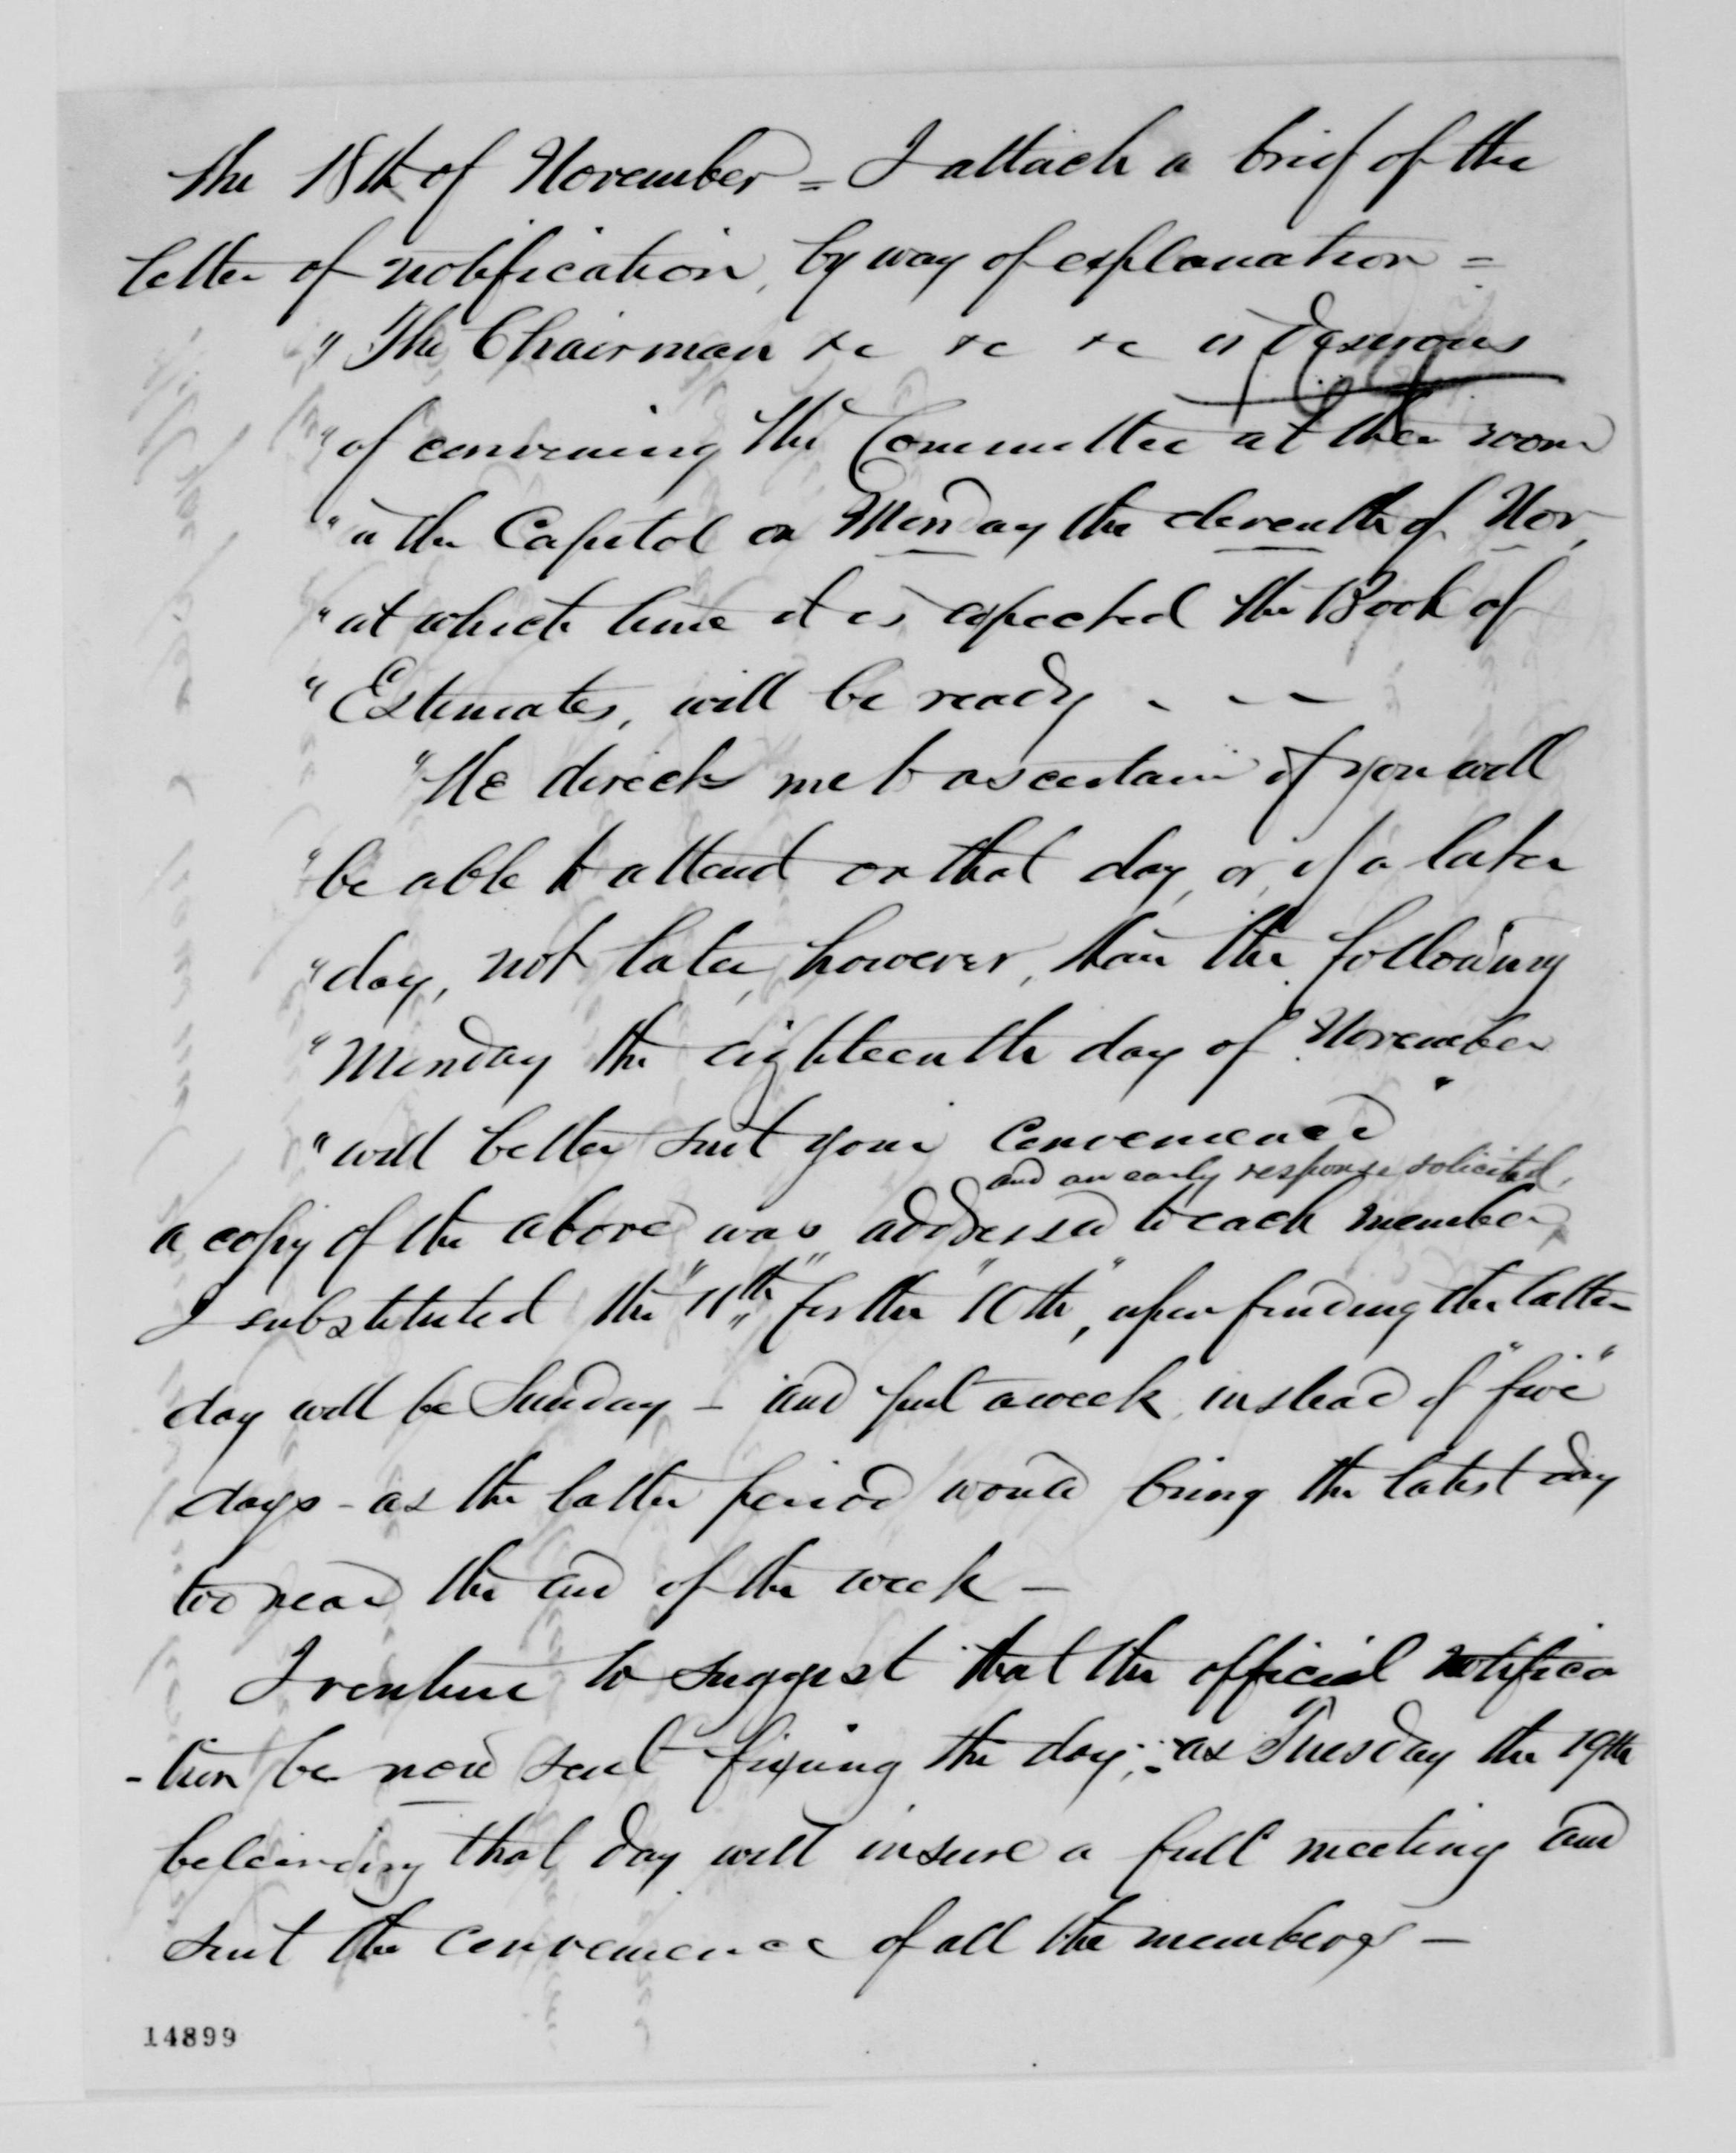 the 18th of November = I attach a brief of the
letter of notification, by way of explanation =
"The Chairman &c &c &c is desirous
"of convening the Committee at their room
"in the Capitol on Monday the eleventh of Nov,
"at which time it is expected the Book of
"Estimates, will be ready - - -
"He directs me to ascertain if you will
"be able to attend on that day, or, if a later
"day, not later, however, than the following
"Monday the eighteenth day of November
"will better suit your convenience"
and an early response solicited,
a copy of the above was addressed to each member,
I substituted the "11th" for the "10th", upon finding the latter
day will be Sunday - and put a week, instead of "five"
days - as the latter period would bring the latest day
too near the end of the week -
I venture to suggest that the official notifica
-tion be now sent fixing the day, as Tuesday the 19th
believing that day will insure a full meeting and
suit the convenience of all the members -
14899